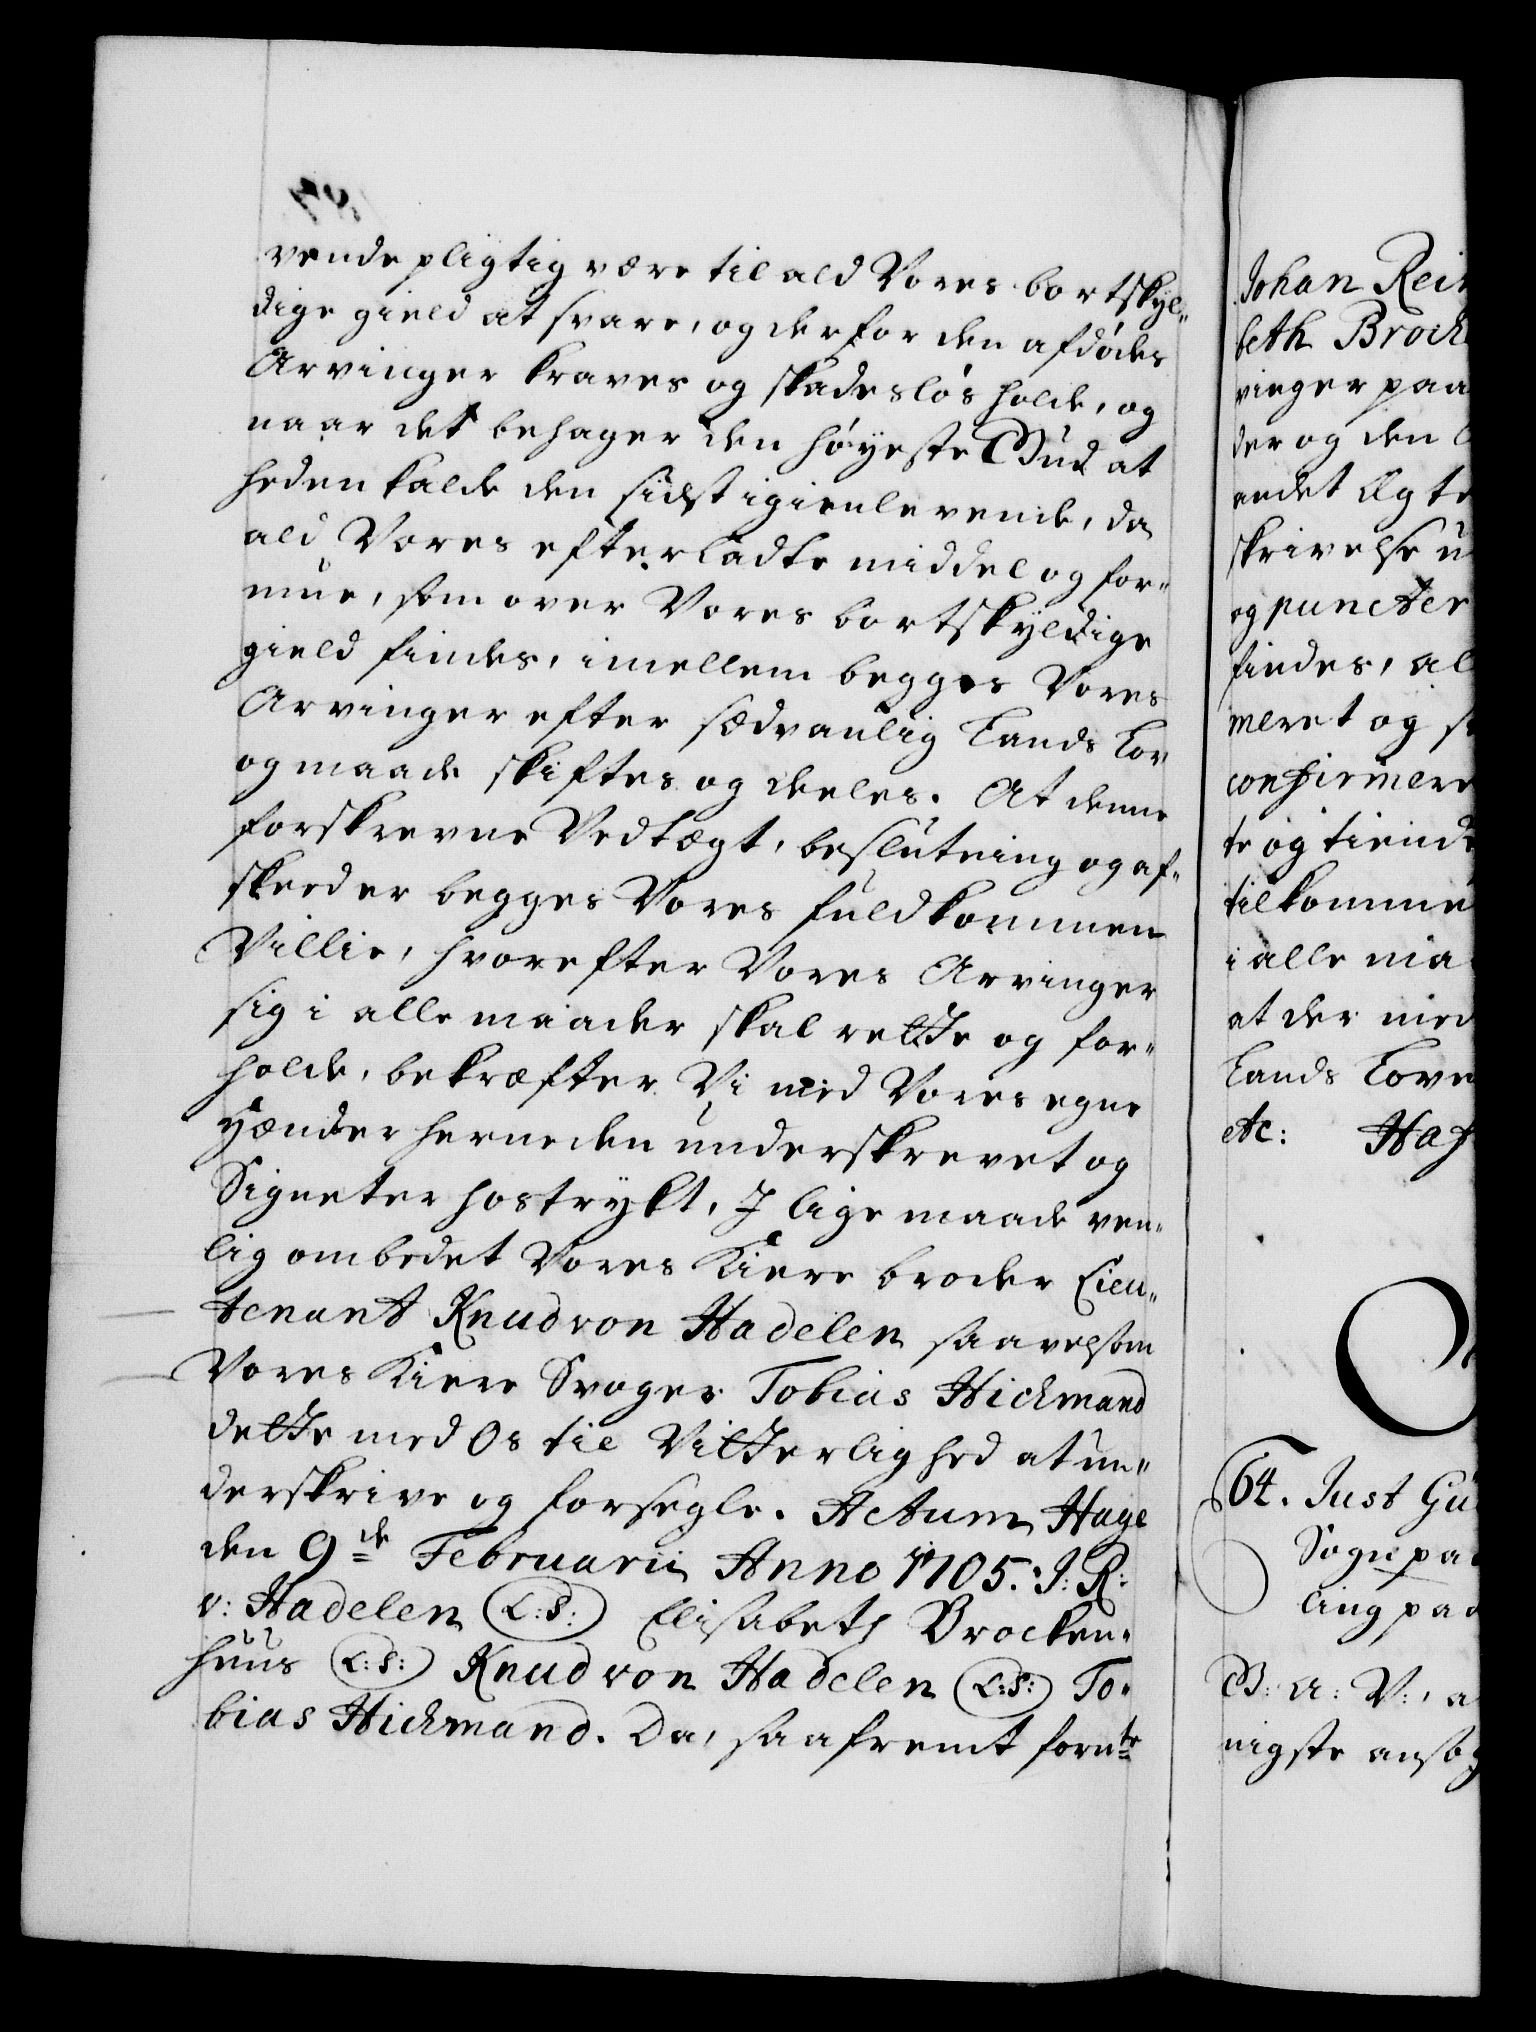 vende pligtig være til ald Vores bortskyl-
dige gield at svare, og derfor den afdødes
Arvinger kraves og skadesløs holde, og
naar det behager den høyeste Gud at
heden kalde den sidst igienlevende, da
ald Vores efterladte middel og for-
mue, som over Vores bortskyldige
gield findes, imellem begges Vores
Arvinger efter sædvanlig Lands Lov
og maade skiftes og deeles. At denne
forskrevne Vedtægt, beslutning og af-
skeed er begges Vores fuldkommen
Villie, hvorefter Vores Arvinger
sig i alle maader skal rette og for-
holde, bekræfter Vi med Vores egne
Hænder herneden underskrevet og
Signeter hostrykt, I lige maade ven-
lig ombedet Vores Kiere broder Lieu-
tenant Knud von Hadelen saavelsom
Vores Kiere Svoger Tobias Hickmand
dette med Os til Vitterlighed at un-
derskrive og forsegle. Actum Hage
den 9de Februarii Anno 1705. J: R:
v: Hadelen (L:S:) Elisabeth Brocken-
huus (L:S:) Knud von Hadelen (L:S:) To-
bias Hickmand. Da, saafremt fornte
Johan Rei
beth Brock
vinger paa
der og den
andet Ægte
skrivelse u
og puncter
findes, al
meret og s
confirmere
te og tiend
tilkomme
i alle maa
at der med
Lands Love
etc: Haf
64. Just Gü
Sogne pa
ling paa
G: A: V:, a
nigste ansøg